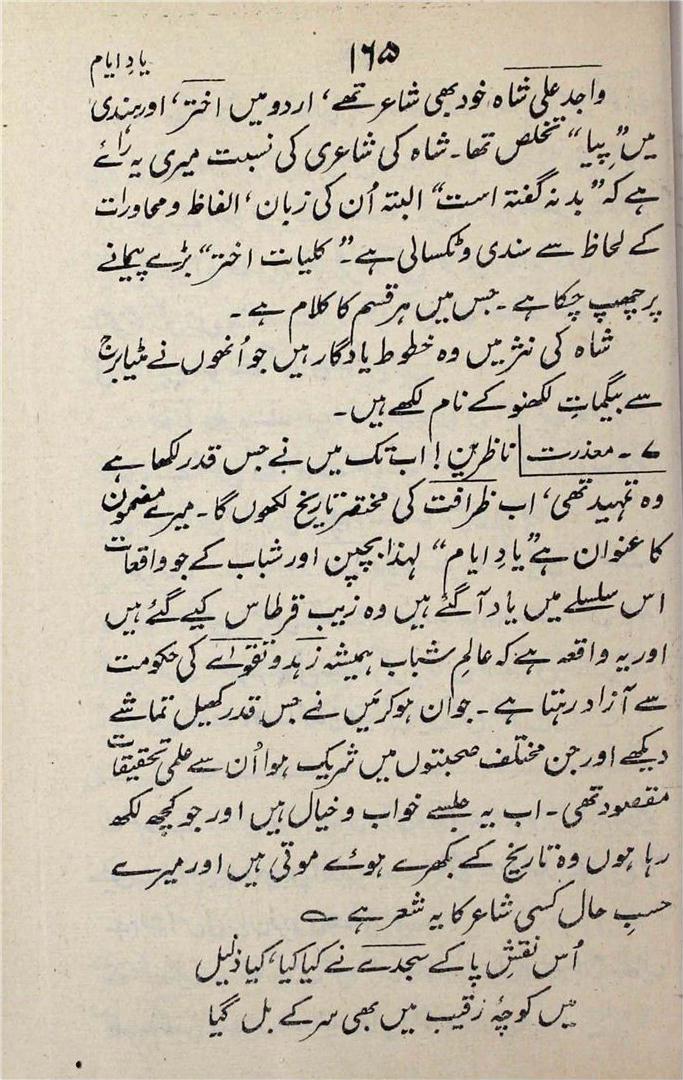 یادِ ایام
۱۶۵
واجد علی شاہ خود بھی شاعر تھے، اردو میں اختر، اور ہندی
میں ”پیا“ تخلص تھا۔ شاہ کی شاعری کی نسبت میری یہ رائے
ہے کہ ”بد نہ گفتہ است“ البتہ اُن کی زبان، الفاظ و محاورات
کے لحاظ سے سندی و ٹکسالی ہے۔ ”کلیات اختر“ بڑے پیمانے
پر چھپ چکا ہے۔ جس میں ہر قسم کا کلام ہے۔
شاہ کی نثر میں وہ خطوط یادگار ہیں جو اُنھوں نے مٹیا برج
سے بیگماتِ لکھنو کے نام لکھے ہیں۔
۷ - معذرت ناظرین! اب تک میں نے جس قدر لکھا ہے
وہ تمہید تھی، اب ظرافت کی مختصر تاریخ لکھوں گا۔ میرے مضمون
کا عنوان ہے ”یادِ ایام“ لہذا بچپن اور شباب کے جو واقعات
اس سلسلے میں یاد آگئے ہیں وہ زیب قرطاس کیے گئے ہیں
اور یہ واقعہ ہے کہ عالمِ شباب ہمیشہ زہد و تقوےٰ کی حکومت
سے آزاد رہتا ہے۔ جوان ہوکر میں نے جس قدر کھیل تماشے
دیکھے اور جن مختلف صحبتوں میں شریک ہوا اُن سے علمی تحقیقات
مقصود تھی۔ اب یہ جلسے خواب و خیال ہیں اور جو کچھ لکھ
رہا ہوں وہ تاریخ کے بکھرے ہوئے موتی ہیں اور میرے
حسبِ حال کسی شاعر کا یہ شعر ہے ؎
اُس نقشِ پا کے سجدے نے کیا کیا، کیا ذلیل
میں کوچۂ رقیب میں بھی سر کے بل گیا